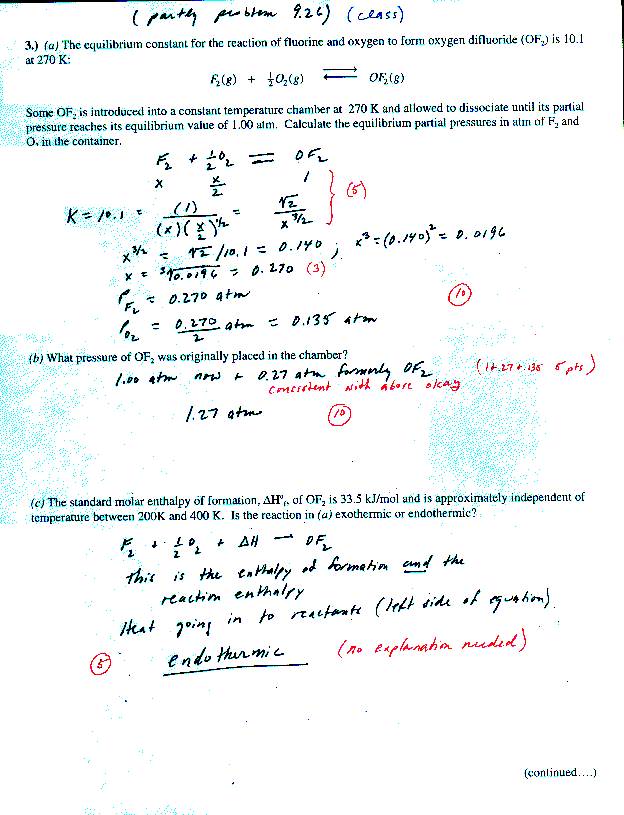 ( partly problem 9.26) (class)
3.) (a) The equilibrium constant for the reaction of fluorine and oxygen to form oxygen difluoride (OF₂) is 10.1
at 270 K:
F₂(g) + ½O₂(g) ⇌ OF₂(g)
Some OF₂ is introduced into a constant temperature chamber at 270 K and allowed to dissociate until its partial
pressure reaches its equilibrium value of 1.00 atm. Calculate the equilibrium partial pressures in atm of F₂ and
O₂ in the container.
F₂ + ½O₂ = OF₂
x x/2 1
K = 10.1 = (1)/(x)(x/2)^½ = √2/x^3/2 (5)
x^3/2 = √2/10.1 = 0.140 ; x³ = (0.140)² = 0.0196
x = ³√0.0196 = 0.270 (3)
P F₂ = 0.270 atm (10)
P O₂ = 0.270/2 atm = 0.135 atm
(b) What pressure of OF₂ was originally placed in the chamber?
1.00 atm now + 0.27 atm formerly OF₂ (1+.27+.135 5 pts)
consistent with above okay
1.27 atm (10)
(c) The standard molar enthalpy of formation, ΔH°f, of OF₂ is 33.5 kJ/mol and is approximately independent of
temperature between 200K and 400 K. Is the reaction in (a) exothermic or endothermic?
F₂ + ½O₂ + ΔH → OF₂
This is the enthalpy of formation and the
reaction enthalpy
Heat going in to reactants (left side of equation)
(5) endothermic (no explanation needed)
(continued....)